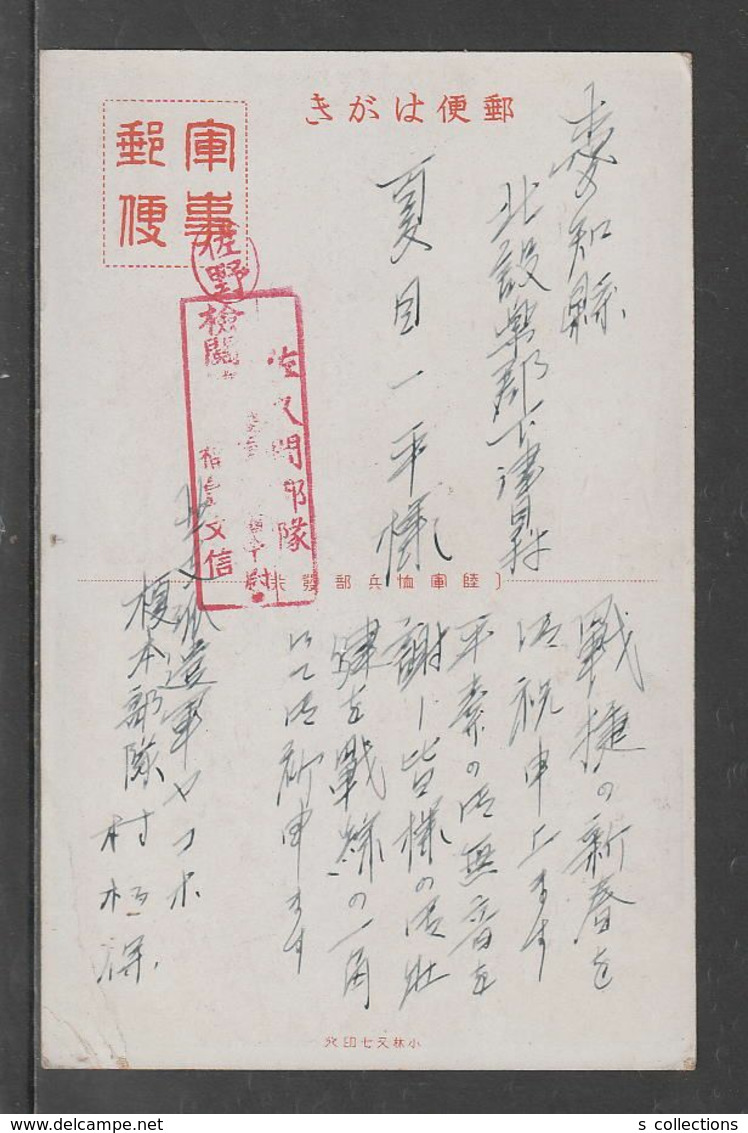 郵便はがき
軍事
郵便
愛知縣
北設樂郡下津具村
夏目一平様
佐野
檢閲
佐久間部隊
文信
陸軍恤兵部發行
戰捷の新春を
御祝申上ます
平素の御無音を
謝し皆様の御壯
健を戰線の一角
にて御祈申ます
北支派遣軍ヤマホ
榎本部隊
村松
小林又七印行
s collections